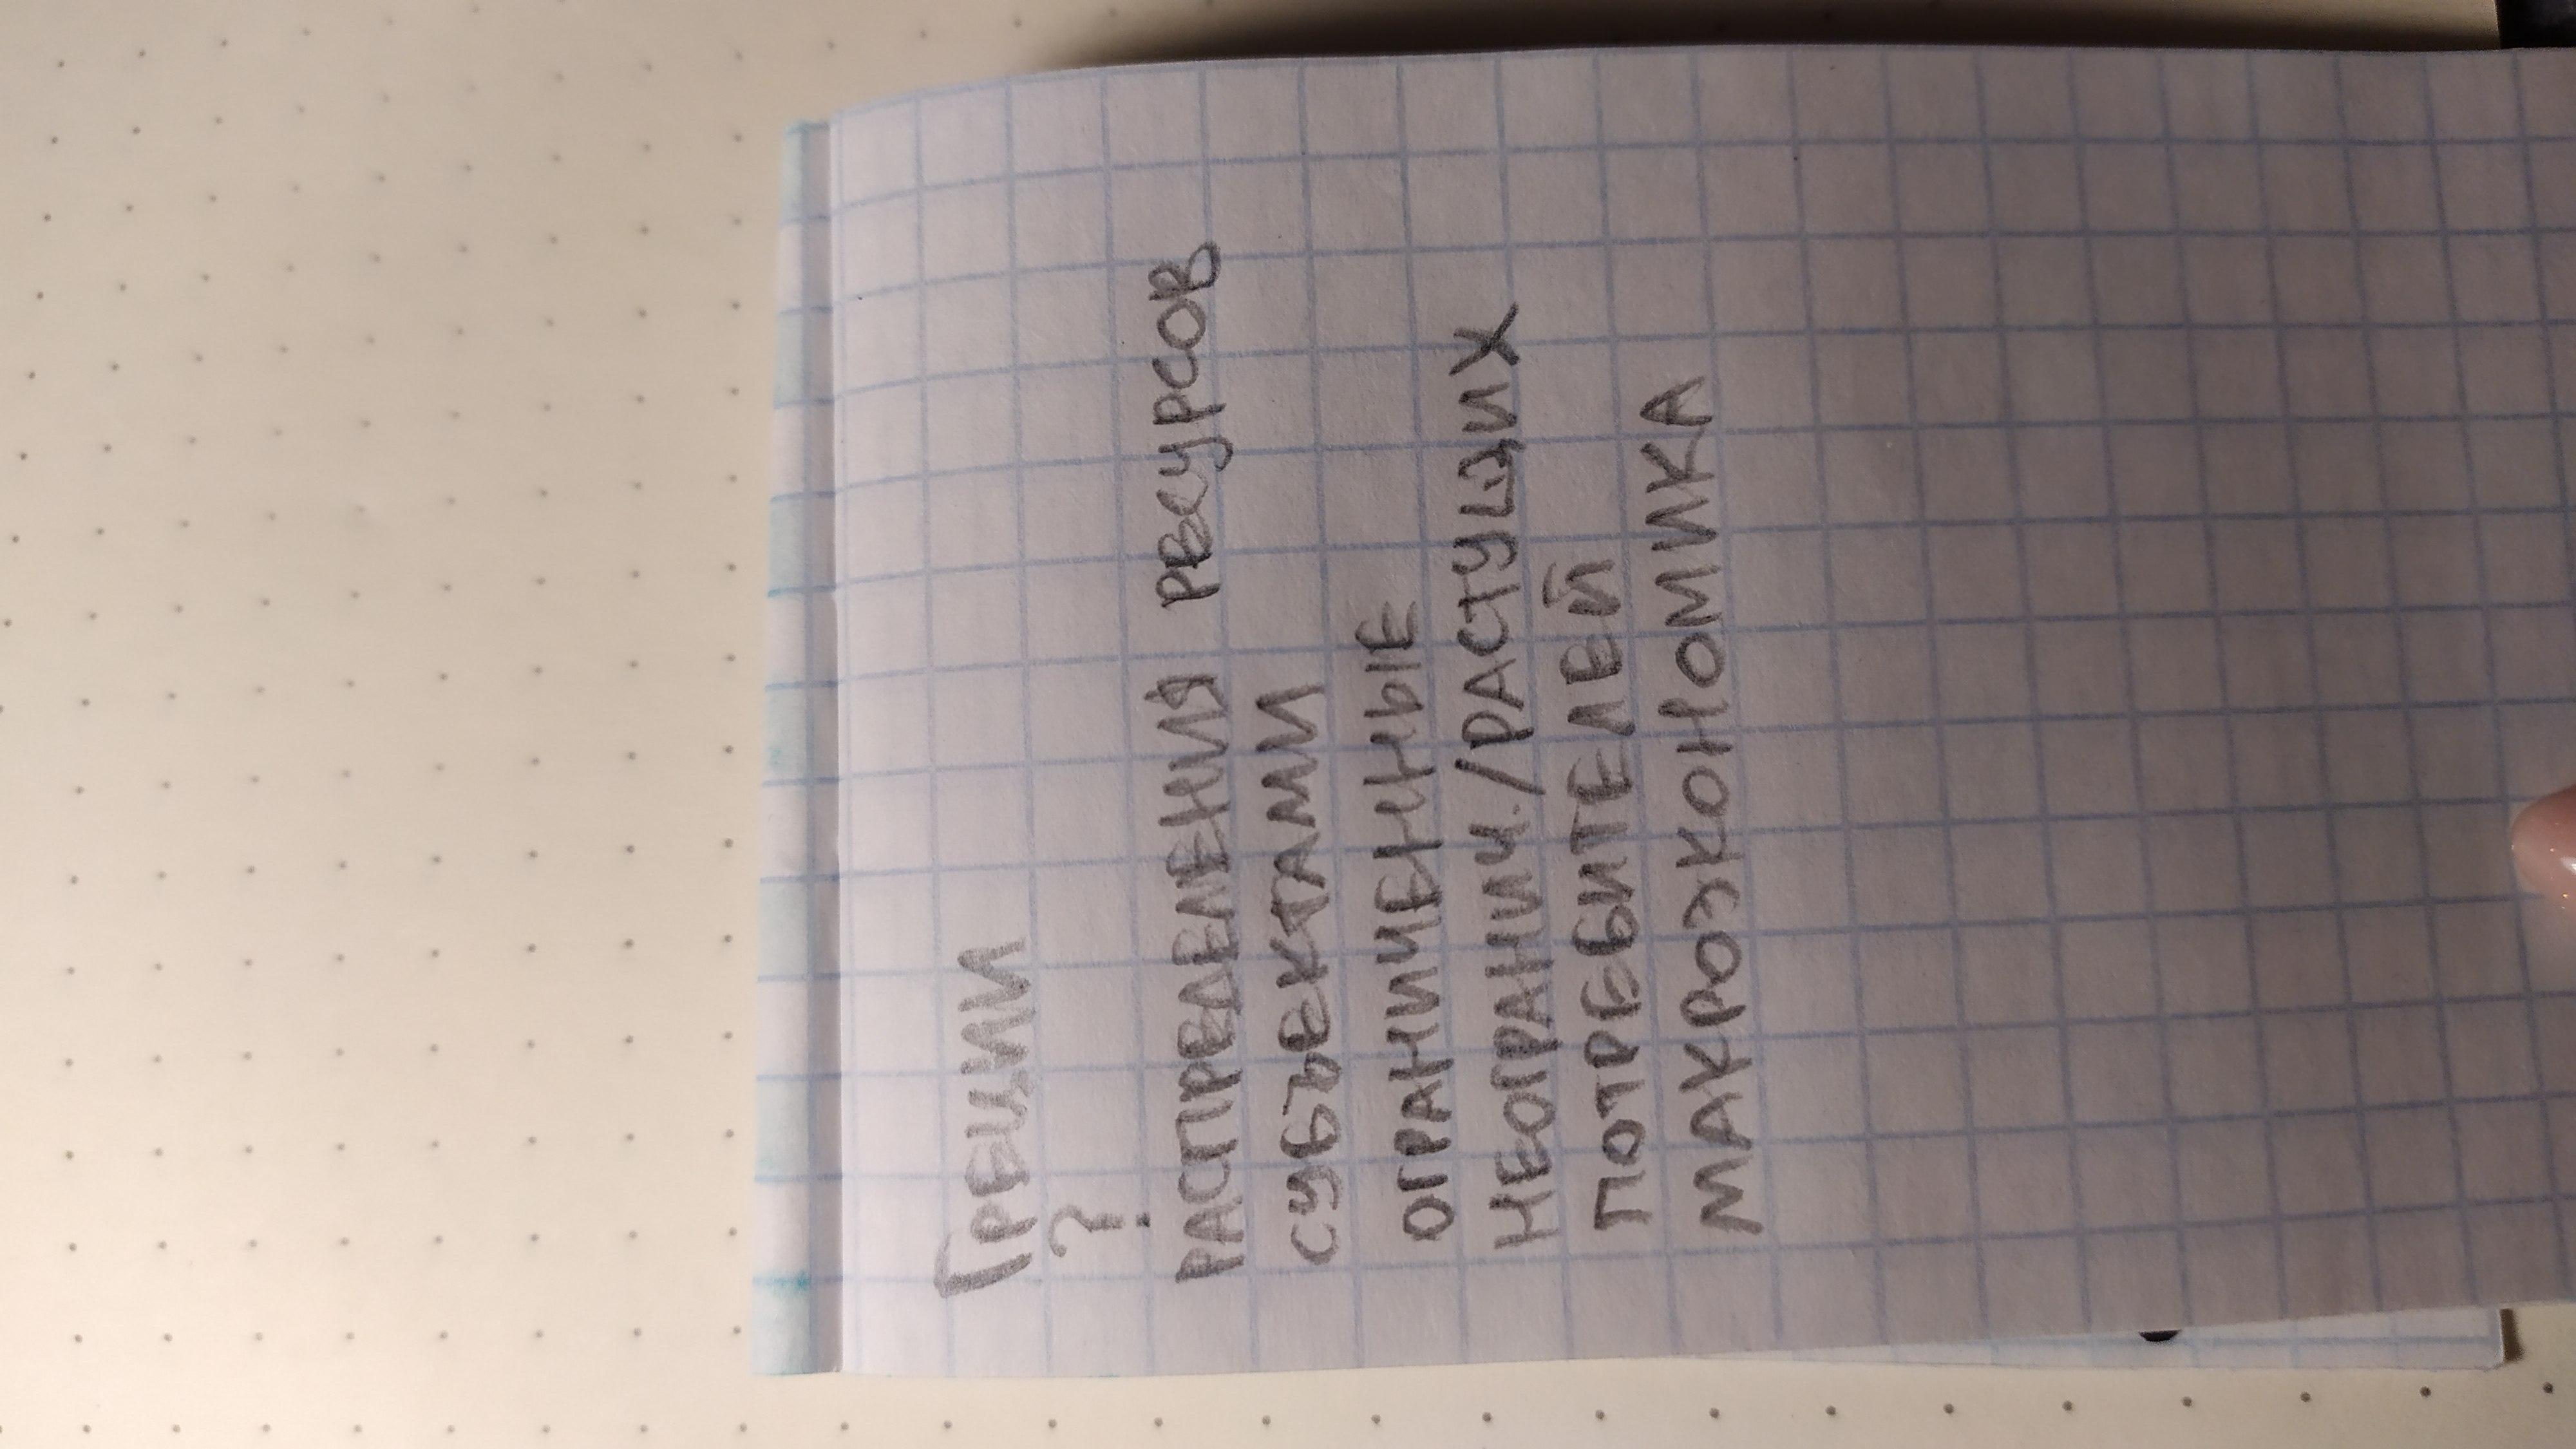 Греции
?
РАСПРЕДЕЛЕНИЯ РЕСУРСОВ
СУБЪЕКТАМИ
ОГРАНИЧЕННЫЕ
НЕОГРАНИЧ./РАСТУЩИХ
ПОТРЕБИТЕЛЕЙ
МАКРОЭКОНОМИКА